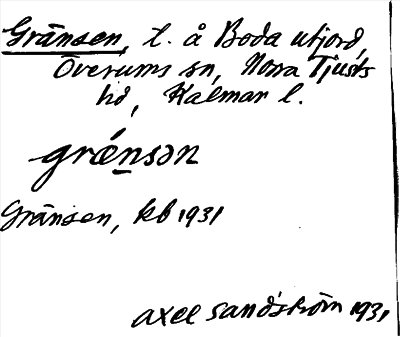 Gränsen, t. å Boda utjord,
Överums sn, Norra Tjusts
hd, Kalmar l.
grǽnsən
Gränsen, kb 1931
Axel Sandström 1931